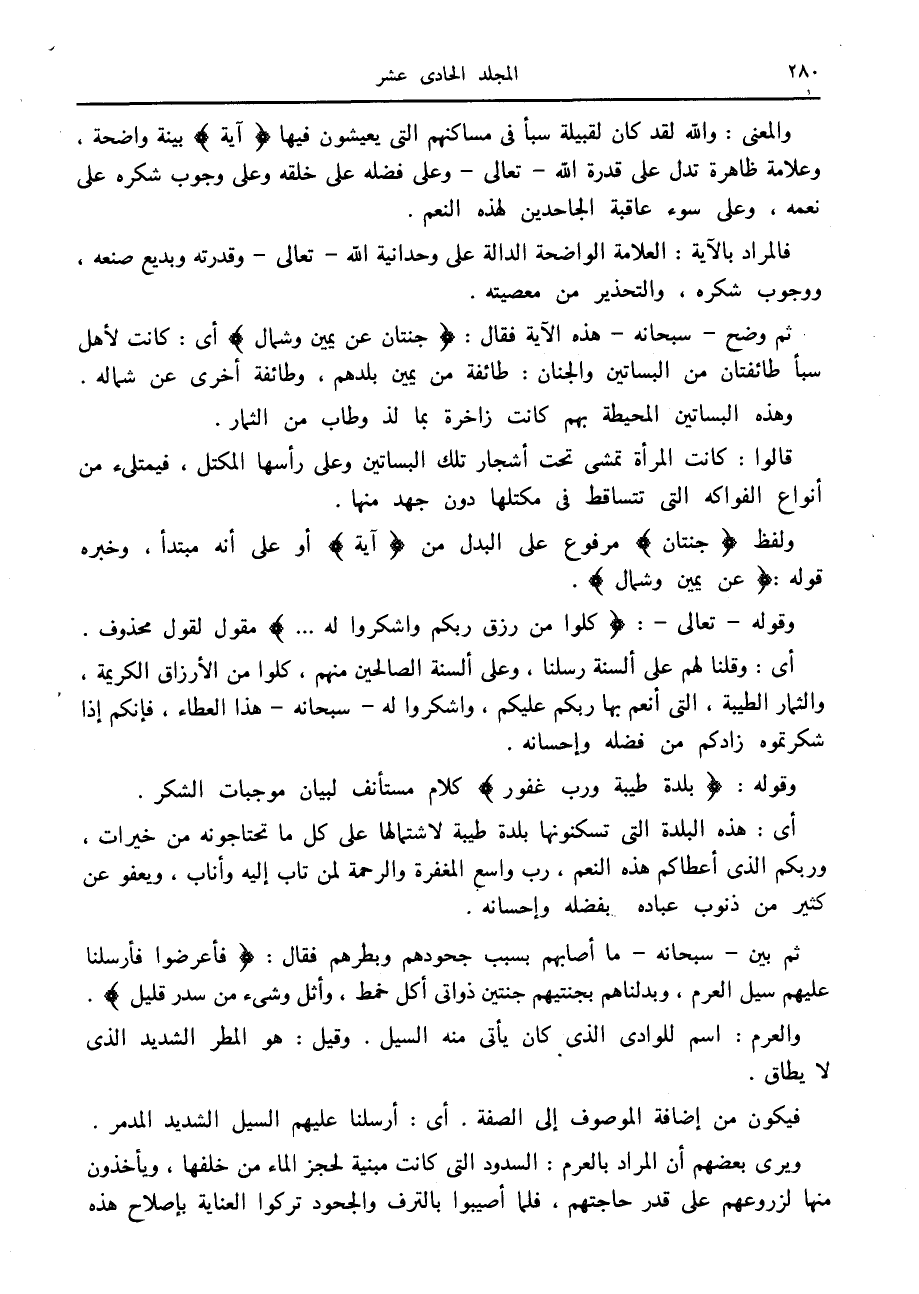 ٢٨٠ المجلد الحادى عشر
والمعنى : والله لقد كان لقبيلة سبأ فى مساكنهم التى يعيشون فيها ﴿ آية ﴾ بينة واضحة ،
وعلامة ظاهرة تدل على قدرة الله – تعالى – وعلى فضله على خلقه وعلى وجوب شكره على
نعمه ، وعلى سوء عاقبة الجاحدين لهذه النعم .
فالمراد بالآية : العلامة الواضحة الدالة على وحدانية الله – تعالى – وقدرته وبديع صنعه ،
ووجوب شكره ، والتحذير من معصيته .
ثم وضح – سبحانه – هذه الآية فقال : ﴿ جنتان عن يمين وشمال ﴾ أى : كانت لأهل
سبأ طائفتان من البساتين والجنان : طائفة من يمين بلدهم ، وطائفة أخرى عن شماله .
وهذه البساتين المحيطة بهم كانت زاخرة بما لذ وطاب من الثمار .
قالوا : كانت المرأة تمشى تحت أشجار تلك البساتين وعلى رأسها المكتل ، فيمتلىء من
أنواع الفواكه التى تتساقط فى مكتلها دون جهد منها .
ولفظ ﴿ جنتان ﴾ مرفوع على البدل من ﴿ آية ﴾ أو على أنه مبتدأ ، وخبره
قوله :﴿ عن يمين وشمال ﴾ .
وقوله – تعالى – : ﴿ كلوا من رزق ربكم واشكروا له ... ﴾ مقول لقول محذوف .
أى : وقلنا لهم على ألسنة رسلنا ، وعلى ألسنة الصالحين منهم ، كلوا من الأرزاق الكريمة ،
والثمار الطيبة ، التى أنعم بها ربكم عليكم ، واشكروا له – سبحانه – هذا العطاء ، فإنكم إذا
شكرتموه زادكم من فضله وإحسانه .
وقوله : ﴿ بلدة طيبة ورب غفور ﴾ كلام مستأنف لبيان موجبات الشكر .
أى : هذه البلدة التى تسكنونها بلدة طيبة لاشتمالها على كل ما تحتاجونه من خيرات ،
وربكم الذى أعطاكم هذه النعم ، رب واسع المغفرة والرحمة لمن تاب إليه وأناب ، ويعفو عن
كثير من ذنوب عباده بفضله وإحسانه .
ثم بين – سبحانه – ما أصابهم بسبب جحودهم وبطرهم فقال : ﴿ فأعرضوا فأرسلنا
عليهم سيل العرم ، وبدلناهم بجنتيهم جنتين ذواتى أكل خمط ، وأثل وشىء من سدر قليل ﴾ .
والعرم : اسم للوادى الذى كان يأتى منه السيل . وقيل : هو المطر الشديد الذى
لا يطاق .
فيكون من إضافة الموصوف إلى الصفة . أى : أرسلنا عليهم السيل الشديد المدمر .
ويرى بعضهم أن المراد بالعرم : السدود التى كانت مبنية لحجز الماء من خلفها ، ويأخذون
منها لزروعهم على قدر حاجتهم ، فلما أصيبوا بالترف والجحود تركوا العناية بإصلاح هذه